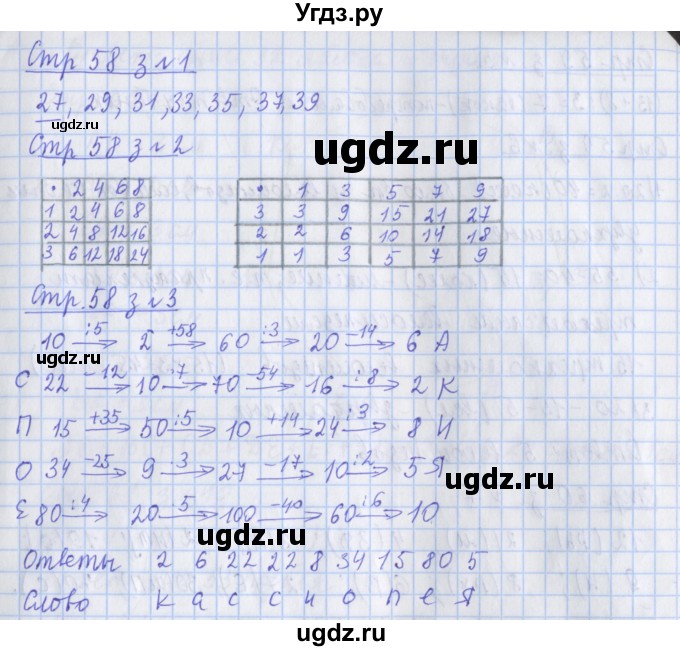 Угдз.ру
Стр 58 з №1
27, 29, 31, 33, 35, 37, 39
ugdz.ru
ugdz.ru
Стр 58 з №2
ugdz.ru
· 2 4 6 8
1 2 4 6 8
2 4 8 12 16
3 6 12 18 24
· 1 3 5 7 9
3 3 9 15 21 27
2 2 6 10 14 18
1 1 3 5 7 9
Стр. 58 з №3
ugdz.ru
10 :5→ 2 +58→ 60 :3→ 20 -14→ 6 А
С 22 -12→ 10 ·7→ 70 -54→ 16 :8→ 2 К
П 15 +35→ 50 :5→ 10 +14→ 24 :3→ 8 И
О 34 -25→ 9 ·3→ 27 -17→ 10 :2→ 5 Я
ugdz.ru
ugdz.ru
Е 80 :4→ 20 ·5→ 100 -40→ 60 :6→ 10
Ответы 2 6 22 22 8 34 15 80 5
ugdz.ru
Слово к а с с и о п е я
ugdz.ru